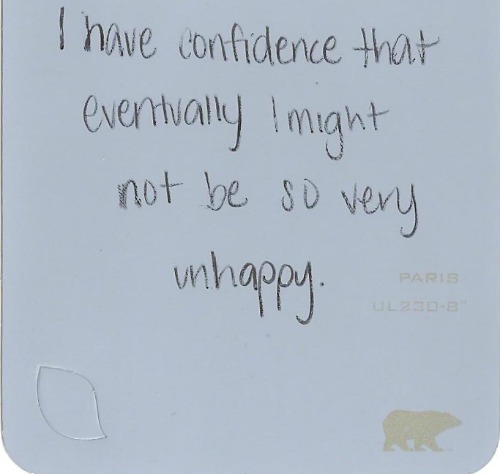 I have confidence that
eventually I might
not be so very
unhappy.
PARIS
UL230-8